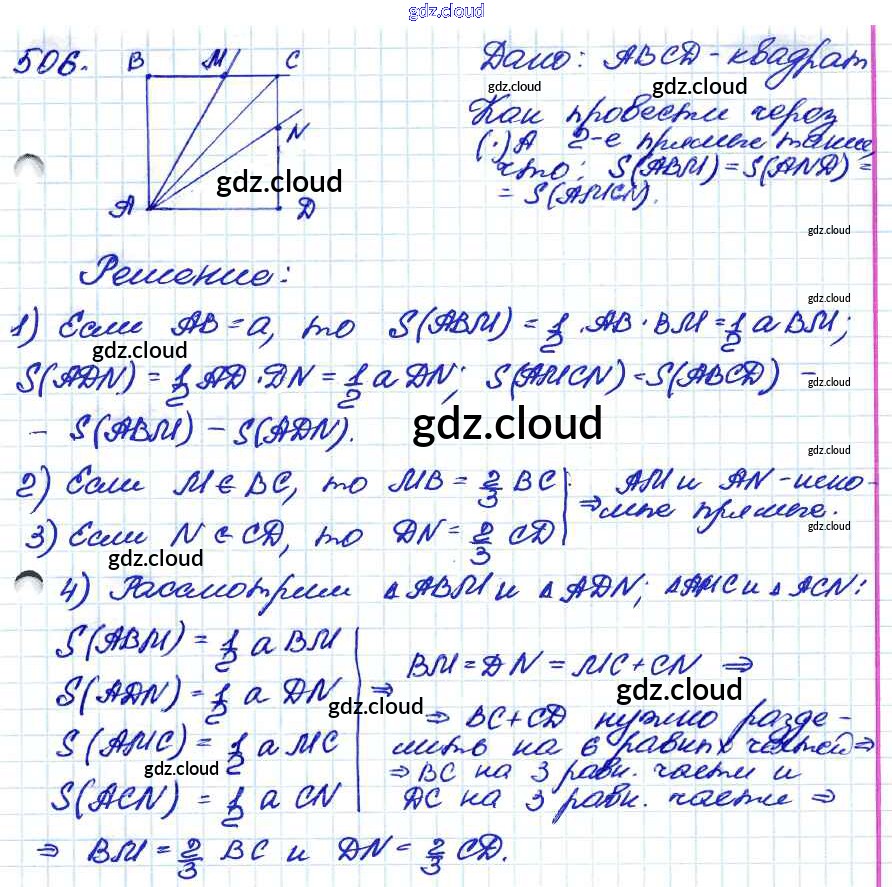 gdz.cloud
506.
B M C
N
A D
gdz.cloud
Дано: ABCD - квадрат
gdz.cloud
gdz.cloud
Как провести через
(·) A 2-е прямые такие,
что: S(ABM) = S(AND) =
= S(AMCN).
gdz.cloud
Решение:
gdz.cloud
1) Если AB = a, то S(ABM) = 1/2 · AB · BM = 1/2 a BM;
gdz.cloud
gdz.cloud
S(ADN) = 1/2 AD · DN = 1/2 a DN; S(AMCN) = S(ABCD) -
- S(ABM) - S(ADN).
gdz.cloud
gdz.cloud
2) Если M ∈ BC, то MB = 2/3 BC
3) Если N ∈ CD, то DN = 2/3 CD
⇒ AM и AN - иско-
мые прямые.
gdz.cloud
gdz.cloud
4) Рассмотрим △ABM и △ADN; △AMC и △ACN:
S(ABM) = 1/2 a BM
S(ADN) = 1/2 a DN
S(AMC) = 1/2 a MC
S(ACN) = 1/2 a CN
gdz.cloud
gdz.cloud
⇒ BM = DN = MC + CN ⇒
gdz.cloud
⇒ BC + CD нужно разде-
лить на 6 равных частей ⇒
⇒ BC на 3 равн. части и
DC на 3 равн. части ⇒
gdz.cloud
⇒ BM = 2/3 BC и DN = 2/3 CD.